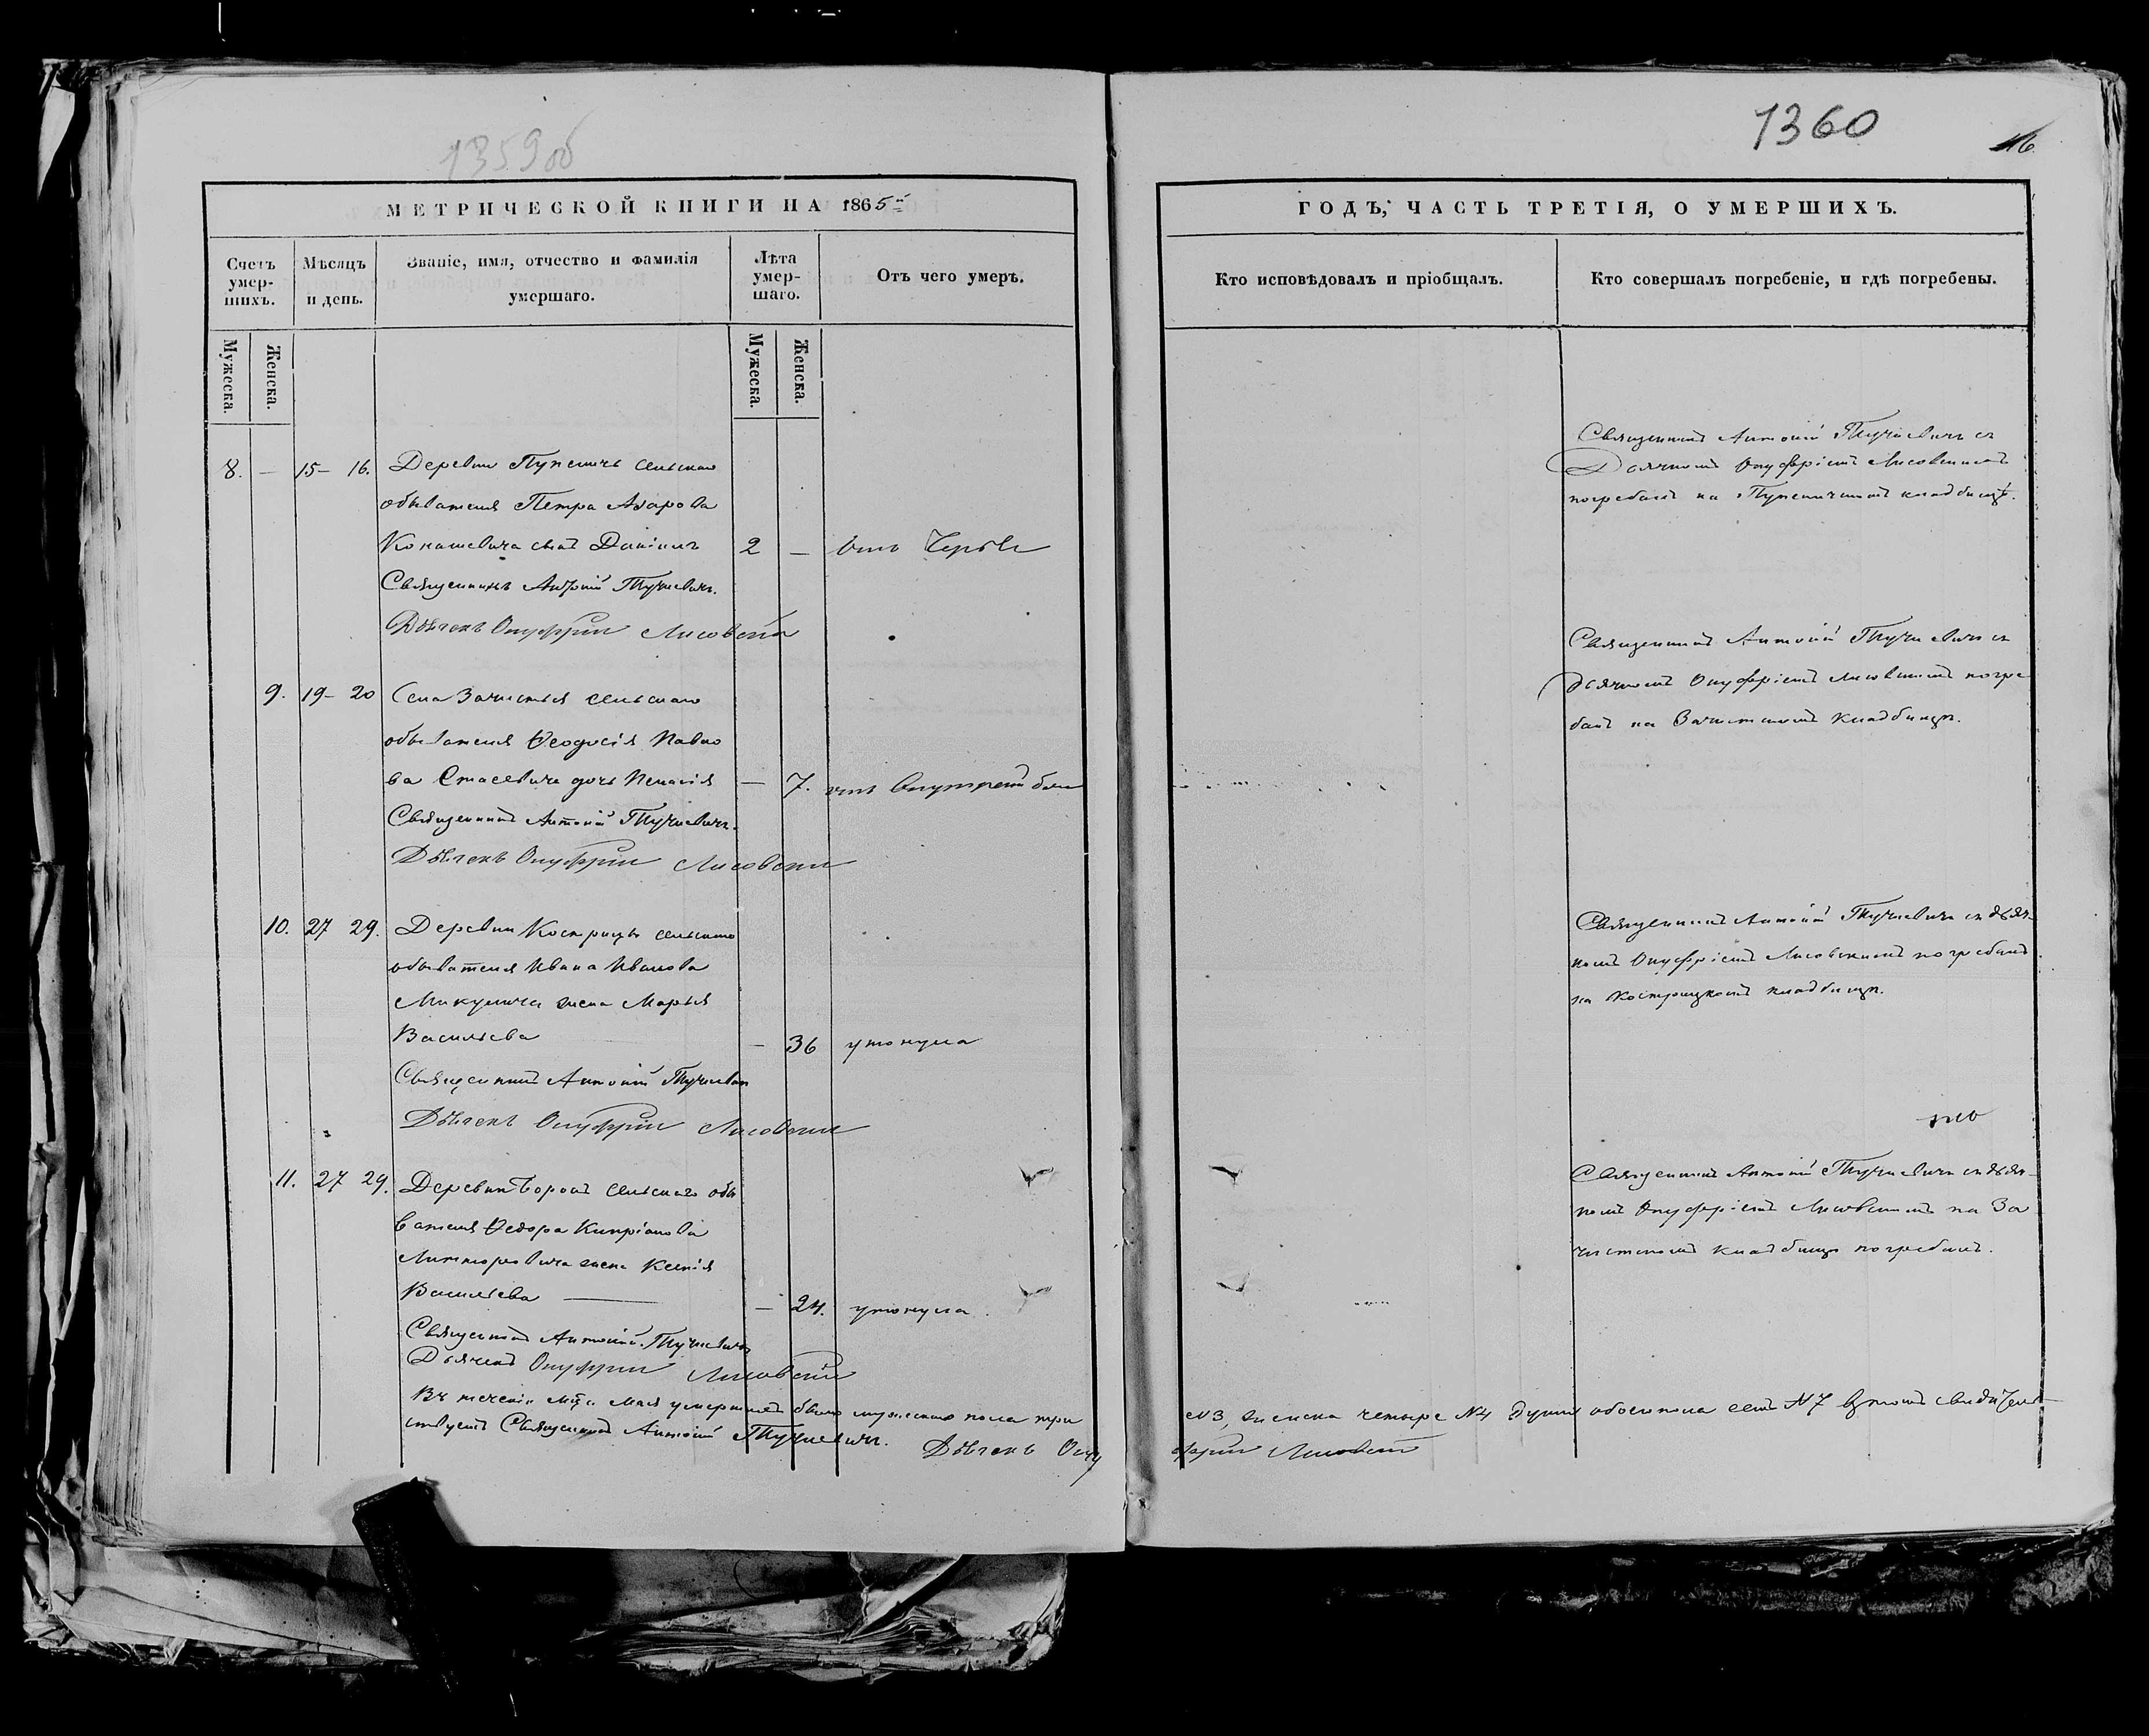 1359об
1360
16
МЕТРИЧЕСКОЙ КНИГИ НА 1865й
ГОДЪ, ЧАСТЬ ТРЕТІЯ, О УМЕРШИХЪ.
Счетъ умер-шихъ.
Мужеска.
Женска.
Мѣсяцъ и день.
Званіе, имя, отчество и фамилія
умершаго.
Лѣта умер-шаго.
Мужеска.
Женска.
Отъ чего умеръ.
Кто исповѣдовалъ и пріобщалъ.
Кто совершалъ погребеніе, и гдѣ погребены.
8. — 15– 16. Деревни сельскаго
обывателя Петра Азарова
сынъ Даніилъ 2 —
Священникъ Антоній Тучкевичъ.
Дьячекъ Онуфрій Лисовскій
Священникъ Антоній Тучкевичъ съ
Дьячкомъ Онуфріемъ Лисовскимъ
погребалъ на кладбищѣ.
9. 19– 20 Села Зачистья сельскаго
обывателя Ѳеодосія Павло
ва Стасевича дочь Пелагія — 7. отъ
Священникъ Антоній Тучкевичъ.
Дьячекъ Онуфрій Лисовскій
Священникъ Антоній Тучкевичъ съ
дьячкомъ Онуфріемъ Лисовскимъ погре
балъ на Зачистскомъ кладбищѣ.
10. 27 29. Деревни Кострицы сельскаго
обывателя Ивана Иванова
Микулича жена Марья
Васильева — 36 утонула
Священникъ Антоній Тучкевичъ
Дьячекъ Онуфрій Лисовскій
Священникъ Антоній Тучкевичъ съ дьяч-
комъ Онуфріемъ Лисовскимъ погребалъ
на Кострицкомъ кладбищѣ.
11. 27 29. Деревни сельскаго обы
вателя Ѳедора Кипріанова
жена Ксенія
Васильева — 24. утонула.
Священникъ Антоній Тучкевичъ
Дьячекъ Онуфрій Лисовскій
Священникъ Антоній Тучкевичъ съ дьяч-
комъ Онуфріемъ Лисовскимъ на За
чистскомъ кладбищѣ погребалъ.
Въ теченіи Мца Мая умершихъ было мужеска пола три №3, женска четыре №4 душъ обоего пола семь №7 в томъ свидѣтель-
ствуетъ Священникъ Антоній Тучкевичъ. Дьячекъ Ону
фрій Лисовскій